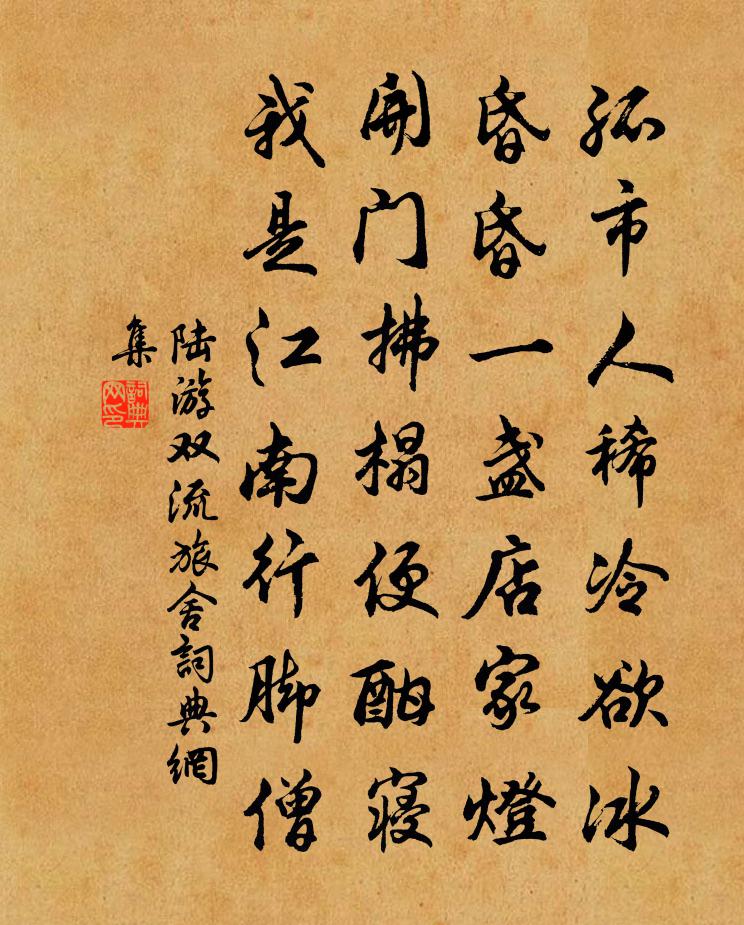 孤市人稀冷欲冰
昏昏一盏店家燈
開门拂榻便酣寝
我是江南行脚僧
陆游双流旅舍詞典網
集
詞典
网印